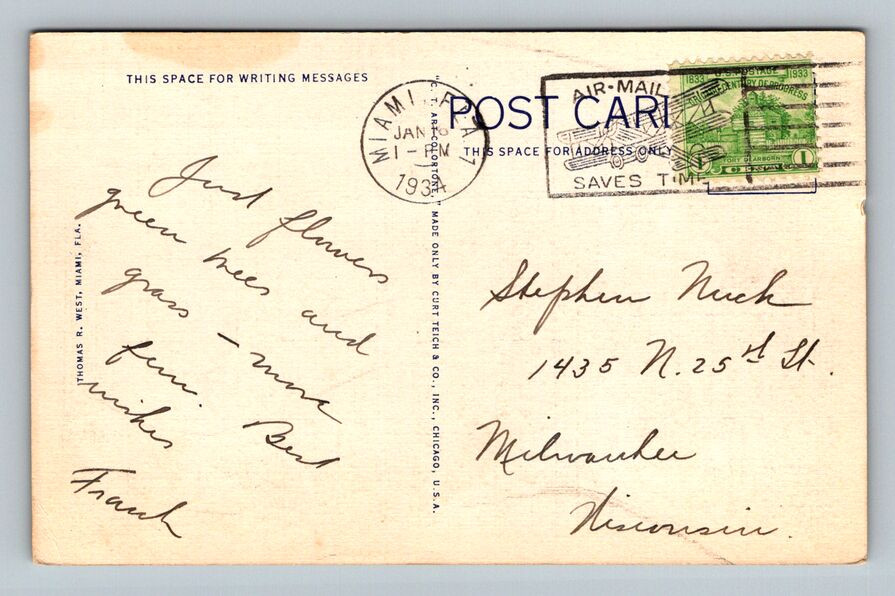 THIS SPACE FOR WRITING MESSAGES
POST CAR
THIS SPACE FOR ADDRESS ONLY
MIAMI, FLA. 7
JAN 16
1 - PM
1934
AIR-MAIL
SAVES TIME
U.S. POSTAGE
1833 1933
CENTURY OF PROGRESS
FORT DEARBORN
1 1
"C. T. ART-COLORTONE" MADE ONLY BY CURT TEICH & CO., INC., CHICAGO, U.S.A.
THOMAS R. WEST, MIAMI, FLA.
Just flowers
green trees and
grass - more
fun. Best
wishes
Frank
Stephen
1435 N. 25 St.
Milwaukee
Wisconsin.